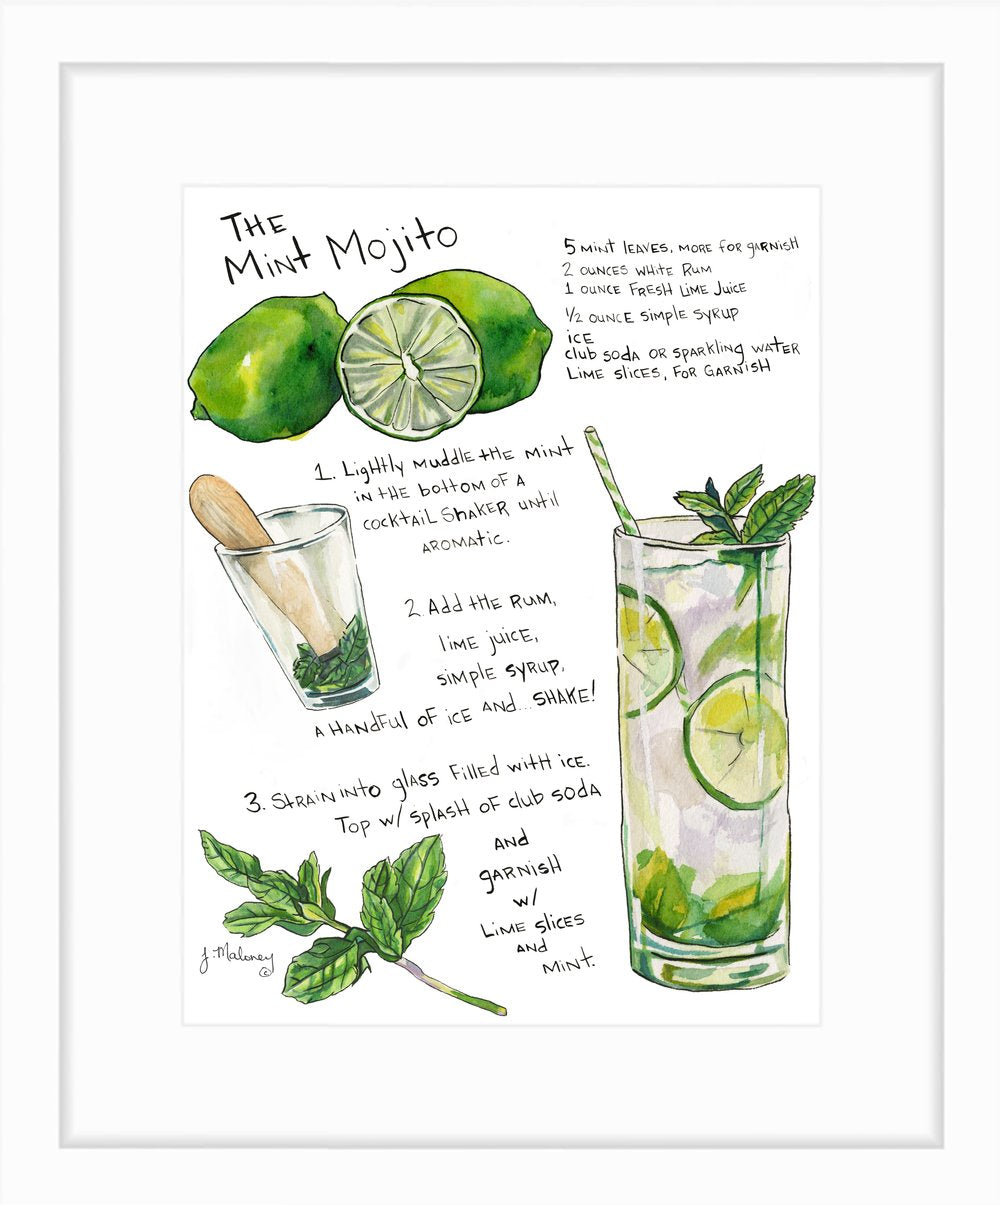 THE
Mint Mojito
5 Mint leaves, more for garnish
2 ounces white Rum
1 ounce Fresh Lime Juice
1/2 ounce simple syrup
ice
club soda or sparkling water
Lime slices, for garnish
1. Lightly muddle the mint
in the bottom of a
cocktail shaker until
aromatic.
2. Add the Rum,
lime juice,
simple syrup,
a handful of ice and... SHAKE!
3. Strain into glass filled with ice.
Top w/ splash of club soda
and
garnish
w/
Lime slices
and
mint.
J. Maloney
©